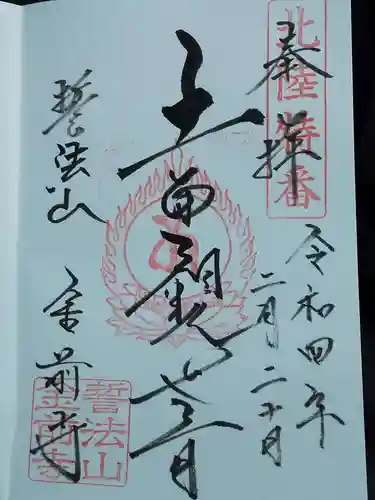 奉拝
北陸特番
令和四年
二月二十日
十一面観世音
誓法山
金前寺
誓法山
金前寺